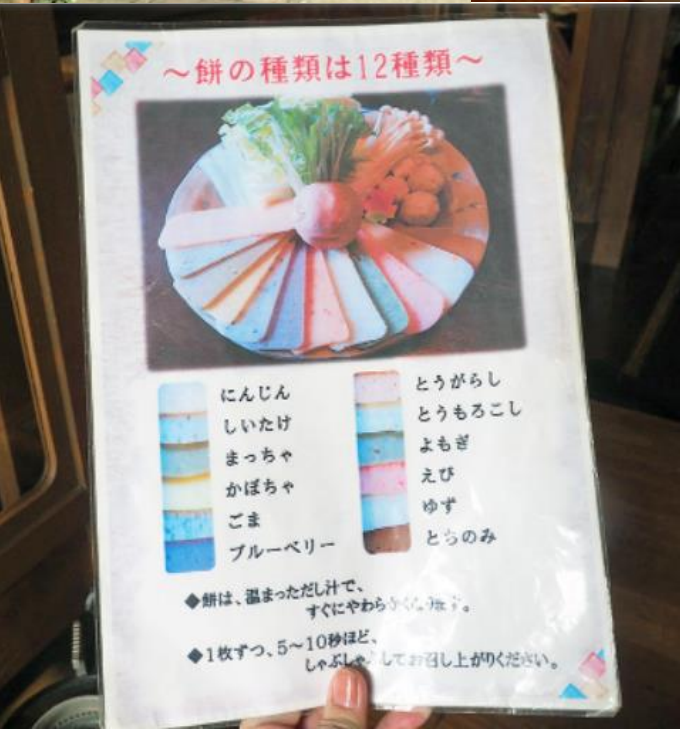 ～餅の種類は12種類～
にんじん
しいたけ
まっちゃ
かぼちゃ
ごま
ブルーベリー
とうがらし
とうもろこし
よもぎ
えび
ゆず
とちのみ
◆餅は、温まっただし汁で、
すぐにやわらかくなります。
◆1枚ずつ、5～10秒ほど、
しゃぶしゃぶしてお召し上がりください。